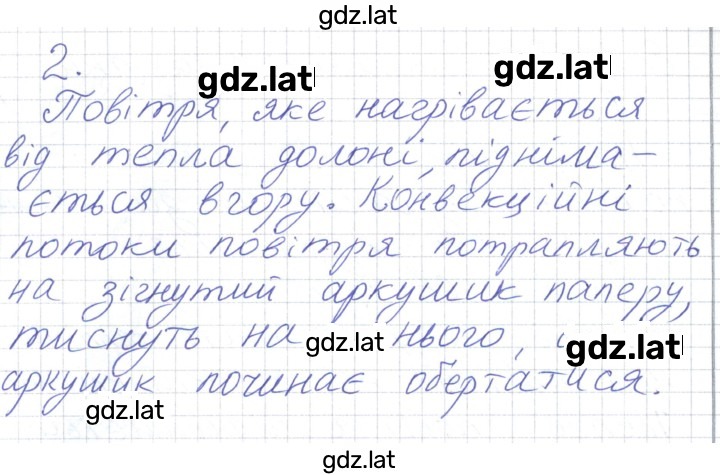 gdz.lat
2.
gdz.lat gdz.lat
Повітря, яке нагрівається
від тепла долоні, підніма-
ється вгору. Конвекційні
потоки повітря потрапляють
на зігнутий аркушик паперу,
тиснуть на нього,
gdz.lat gdz.lat
аркушик починає обертатися.
gdz.lat
gdz.lat